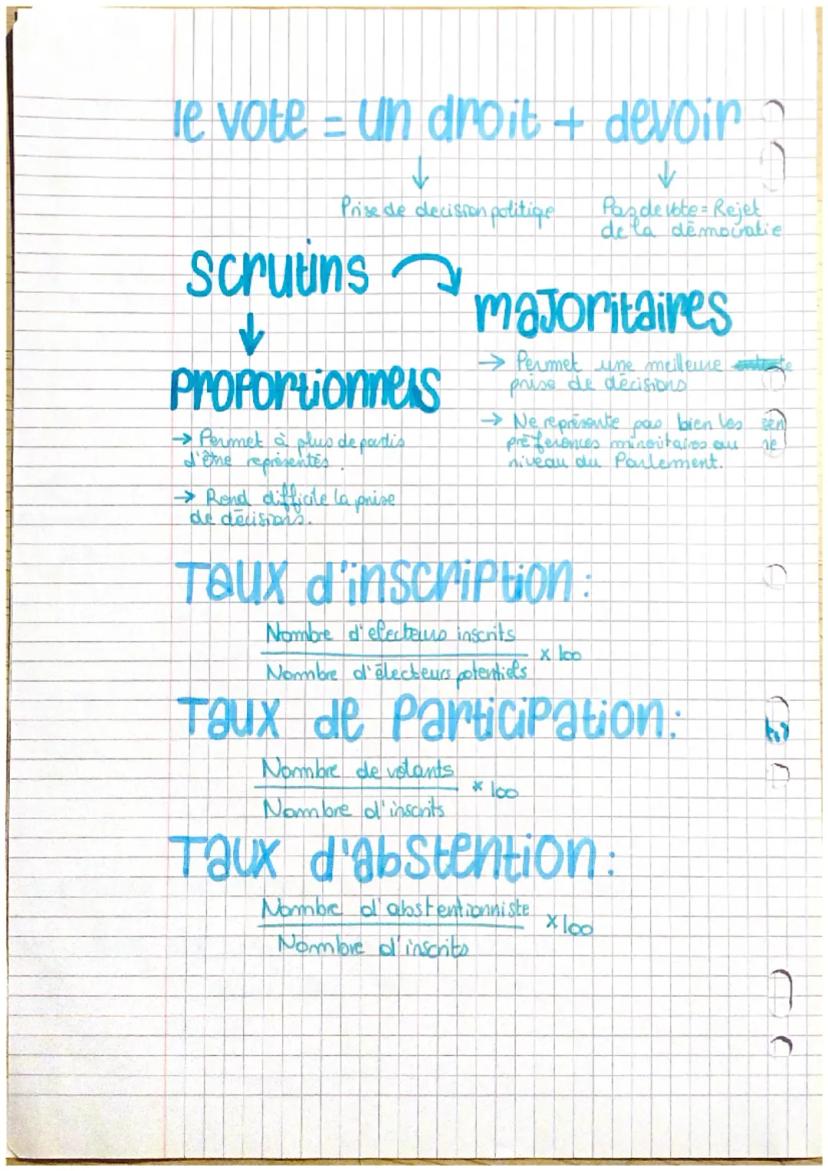 le vote = un droit + devoir
↓ ↓
Prise de decision politique
Pas de vote = Rejet
de la démocratie
scrutins
↓
proportionnels
→ Permet à plus de partis
d'être représentés.
→ Rend difficile la prise
de décisions.
majoritaires
→ Permet une meilleure
prise de décisions
→ Ne représente pas bien les
préférences minoritaires au
niveau du Parlement.
Taux d'inscription :
Nombre d'electeurs inscrits
x 100
Nombre d'électeurs potentiels
Taux de participation :
Nombre de votants
x 100
Nombre d'inscrits
Taux d'abstention :
Nombre d'abstentionniste
x 100
Nombre d'inscrits